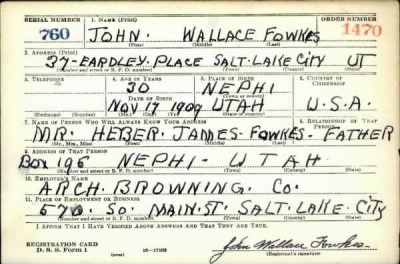 SERIAL NUMBER 1. NAME (Print) ORDER NUMBER
760 JOHN. WALLACE FOWKES 1470
(First) (Middle) (Last)
2. ADDRESS (Print)
27-EARDLEY. PLACE SALT. LAKE CITY UT
(Number and street or R. F. D. number) (Town) (County) (State)
3. TELEPHONE 4. AGE IN YEARS 5. PLACE OF BIRTH 6. COUNTRY OF CITIZENSHIP
30 NEPHI
DATE OF BIRTH (Town or county)
NOV 17 1909 UTAH U.S.A.
(Exchange) (Number) (Mo.) (Day) (Yr.) (State or country)
7. NAME OF PERSON WHO WILL ALWAYS KNOW YOUR ADDRESS 8. RELATIONSHIP OF THAT PERSON
MR. HEBER. JAMES. FOWKES. FATHER
(Mr., Mrs., Miss) (First) (Middle) (Last)
9. ADDRESS OF THAT PERSON
BOX 196 NEPHI. UTAH
(Number and street or R. F. D. number) (Town) (County) (State)
10. EMPLOYER'S NAME
ARCH. BROWNING. CO.
11. PLACE OF EMPLOYMENT OR BUSINESS
570. SO. MAIN. ST. SALT. LAKE. CITY
(Number and street or R. F. D. number) (Town) (County) (State)
I AFFIRM THAT I HAVE VERIFIED ABOVE ANSWERS AND THAT THEY ARE TRUE.
REGISTRATION CARD
D. S. S. Form 1 John Wallace Fowkes
(over) (Registrant's signature)